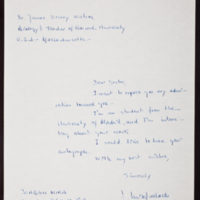 Dr. James Dewey Watson
Biology's Teacher of Harvard University
U.S.A - Massachusetts -
Dear Doctor,
I want to express you my admi-
ration toward you -
I'm an student from the
University of Madrid, and I'm intere-
about your work.
I would like to have your
autograph.
With my best wishes,
Sincerely